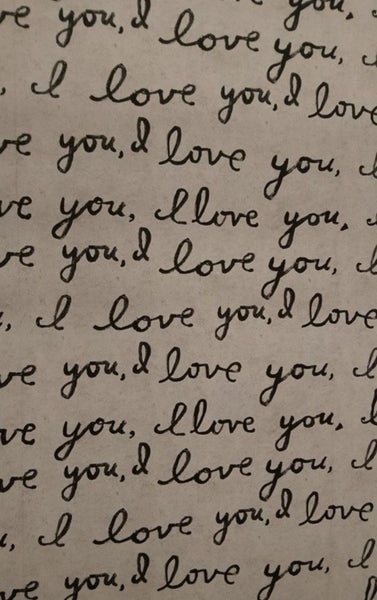 you,
ve you, I love you, I
, I love you, I love
ve you, I love you, I
ve you, I love you, I
ve you, I love you, I
, I love you, I love
ve you, I love you, I
ve you, I love you, I
ve you, I love you, I
u, I love you, I love
ve you, I love you, I